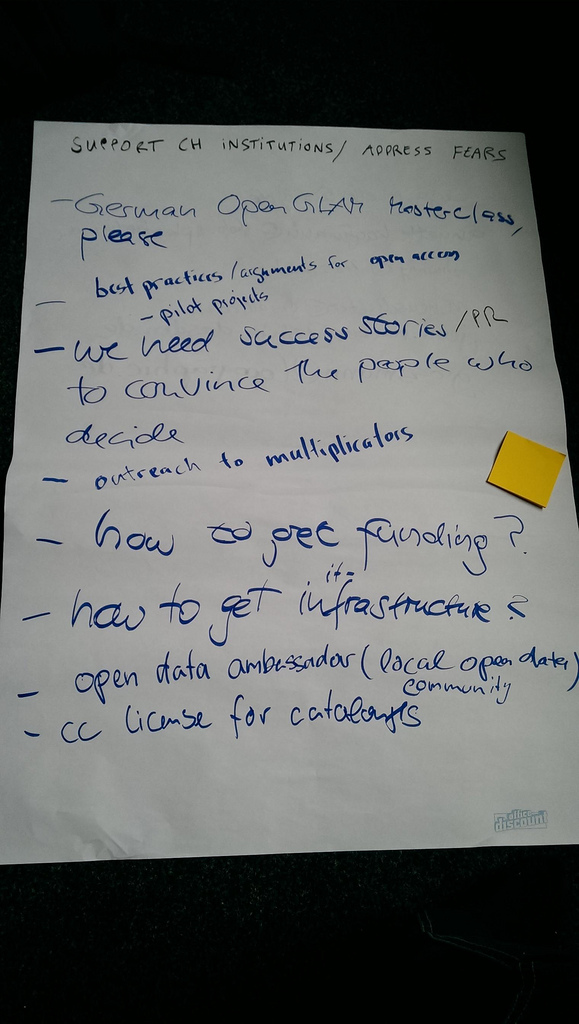 SUPPORT CH INSTITUTIONS/ ADDRESS FEARS
- German OpenGLAM Masterclass,
please
- best practices/arguments for open access
- pilot projects
- we need success stories/PR
to convince the people who
decide
- outreach to multiplicators
- how to get funding?
it-
- how to get infrastructure?
- open data ambassador (local open data)
community
- cc license for catalouges
office
discount